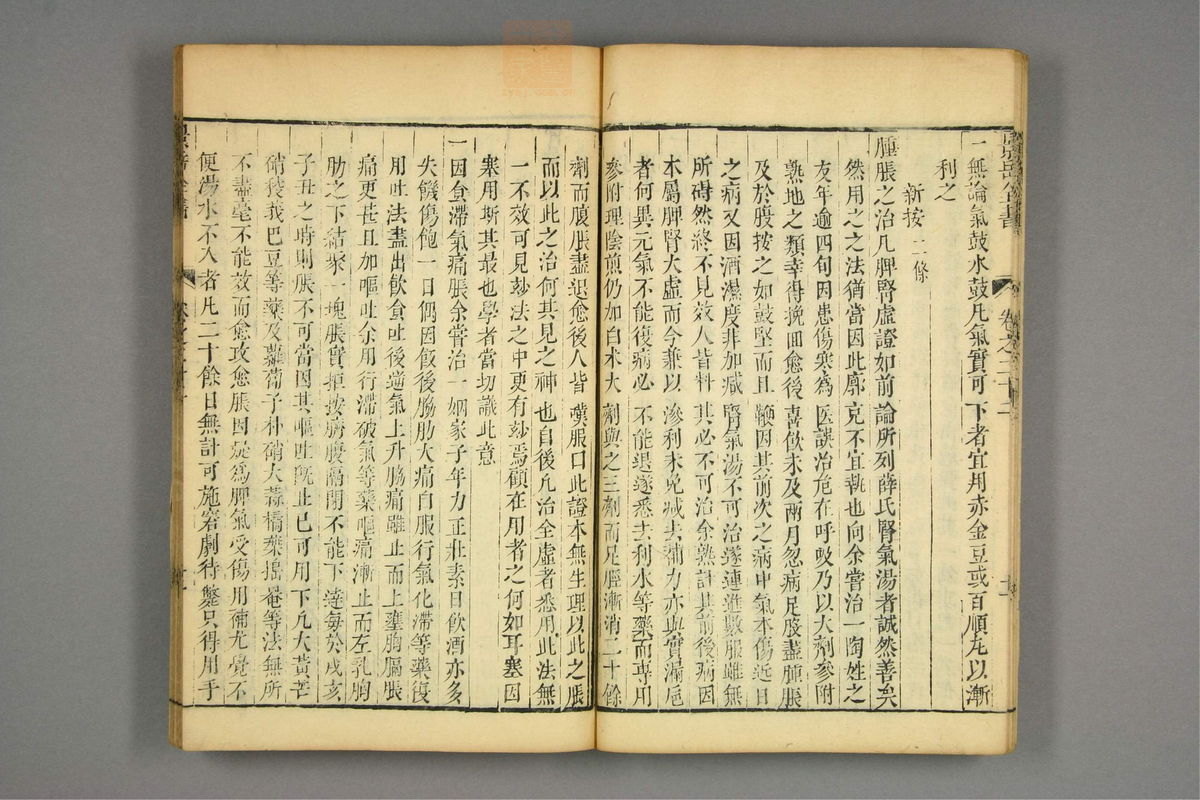 一無論氣鼓水鼓凡氣實可下者宜用赤金豆或百順丸以漸
利之
新按 二條
腫脹之治凡脾腎虛證如前論所列薛氏腎氣湯者誠然善矣
然用之之法猶當因此廓充不宜執也向余嘗治一陶姓之
友年逾四旬因患傷寒爲医誤治危在呼吸乃以大劑參附
熟地之類幸得挽回愈後喜飲未及兩月忽病足股盡腫脹
及於腹按之如鼓堅而且鞭因其前次之病中氣本傷近日
之病又因酒濕度非加減腎氣湯不可治遂連進數服雖無
所碍然終不見效人皆料其必不可治余熟計其前後病因
本屬脾腎大虛而今兼以滲利未免减去補力亦與實漏巵
者何異元氣不能復病必不能退遂悉去利水等藥而專用
參附理陰煎仍加白术大劑與之三劑而足脛漸消二十餘
劑而腹脹盡退愈後人皆嘆服曰此證本無生理以此之脹
而以此之治何其見之神也自後凡治全虛者悉用此法無
一不效可見妙法之中更有妙焉顧在用者之何如耳塞因
塞用斯其最也學者當切識此意
一因食滯氣痛脹余嘗治一姻家子年力正壯素日飲酒亦多
失饑傷飽一日偶因飯後脇肋大痛自服行氣化滯等藥復
用吐法盡出飲食吐後逆氣上升脇痛雖止而上壅胸膈脹
痛更甚且加嘔吐余用行滯破氣等藥嘔痛漸止而左乳胸
肋之下結聚一塊脹實拒按臍腹隔閉不能下達每於戌亥
子丑之時則脹不可當因其嘔吐既止已可用下凡大黃芒
硝稜莪巴豆等藥及蘿葡子朴硝大蒜橘葉搗罨等法無所
不盡毫不能效而愈攻愈脹因疑爲脾氣受傷用補尤覺不
便湯水不入者凡二十餘日無計可施窘劇待斃只得用手
卷之二十二